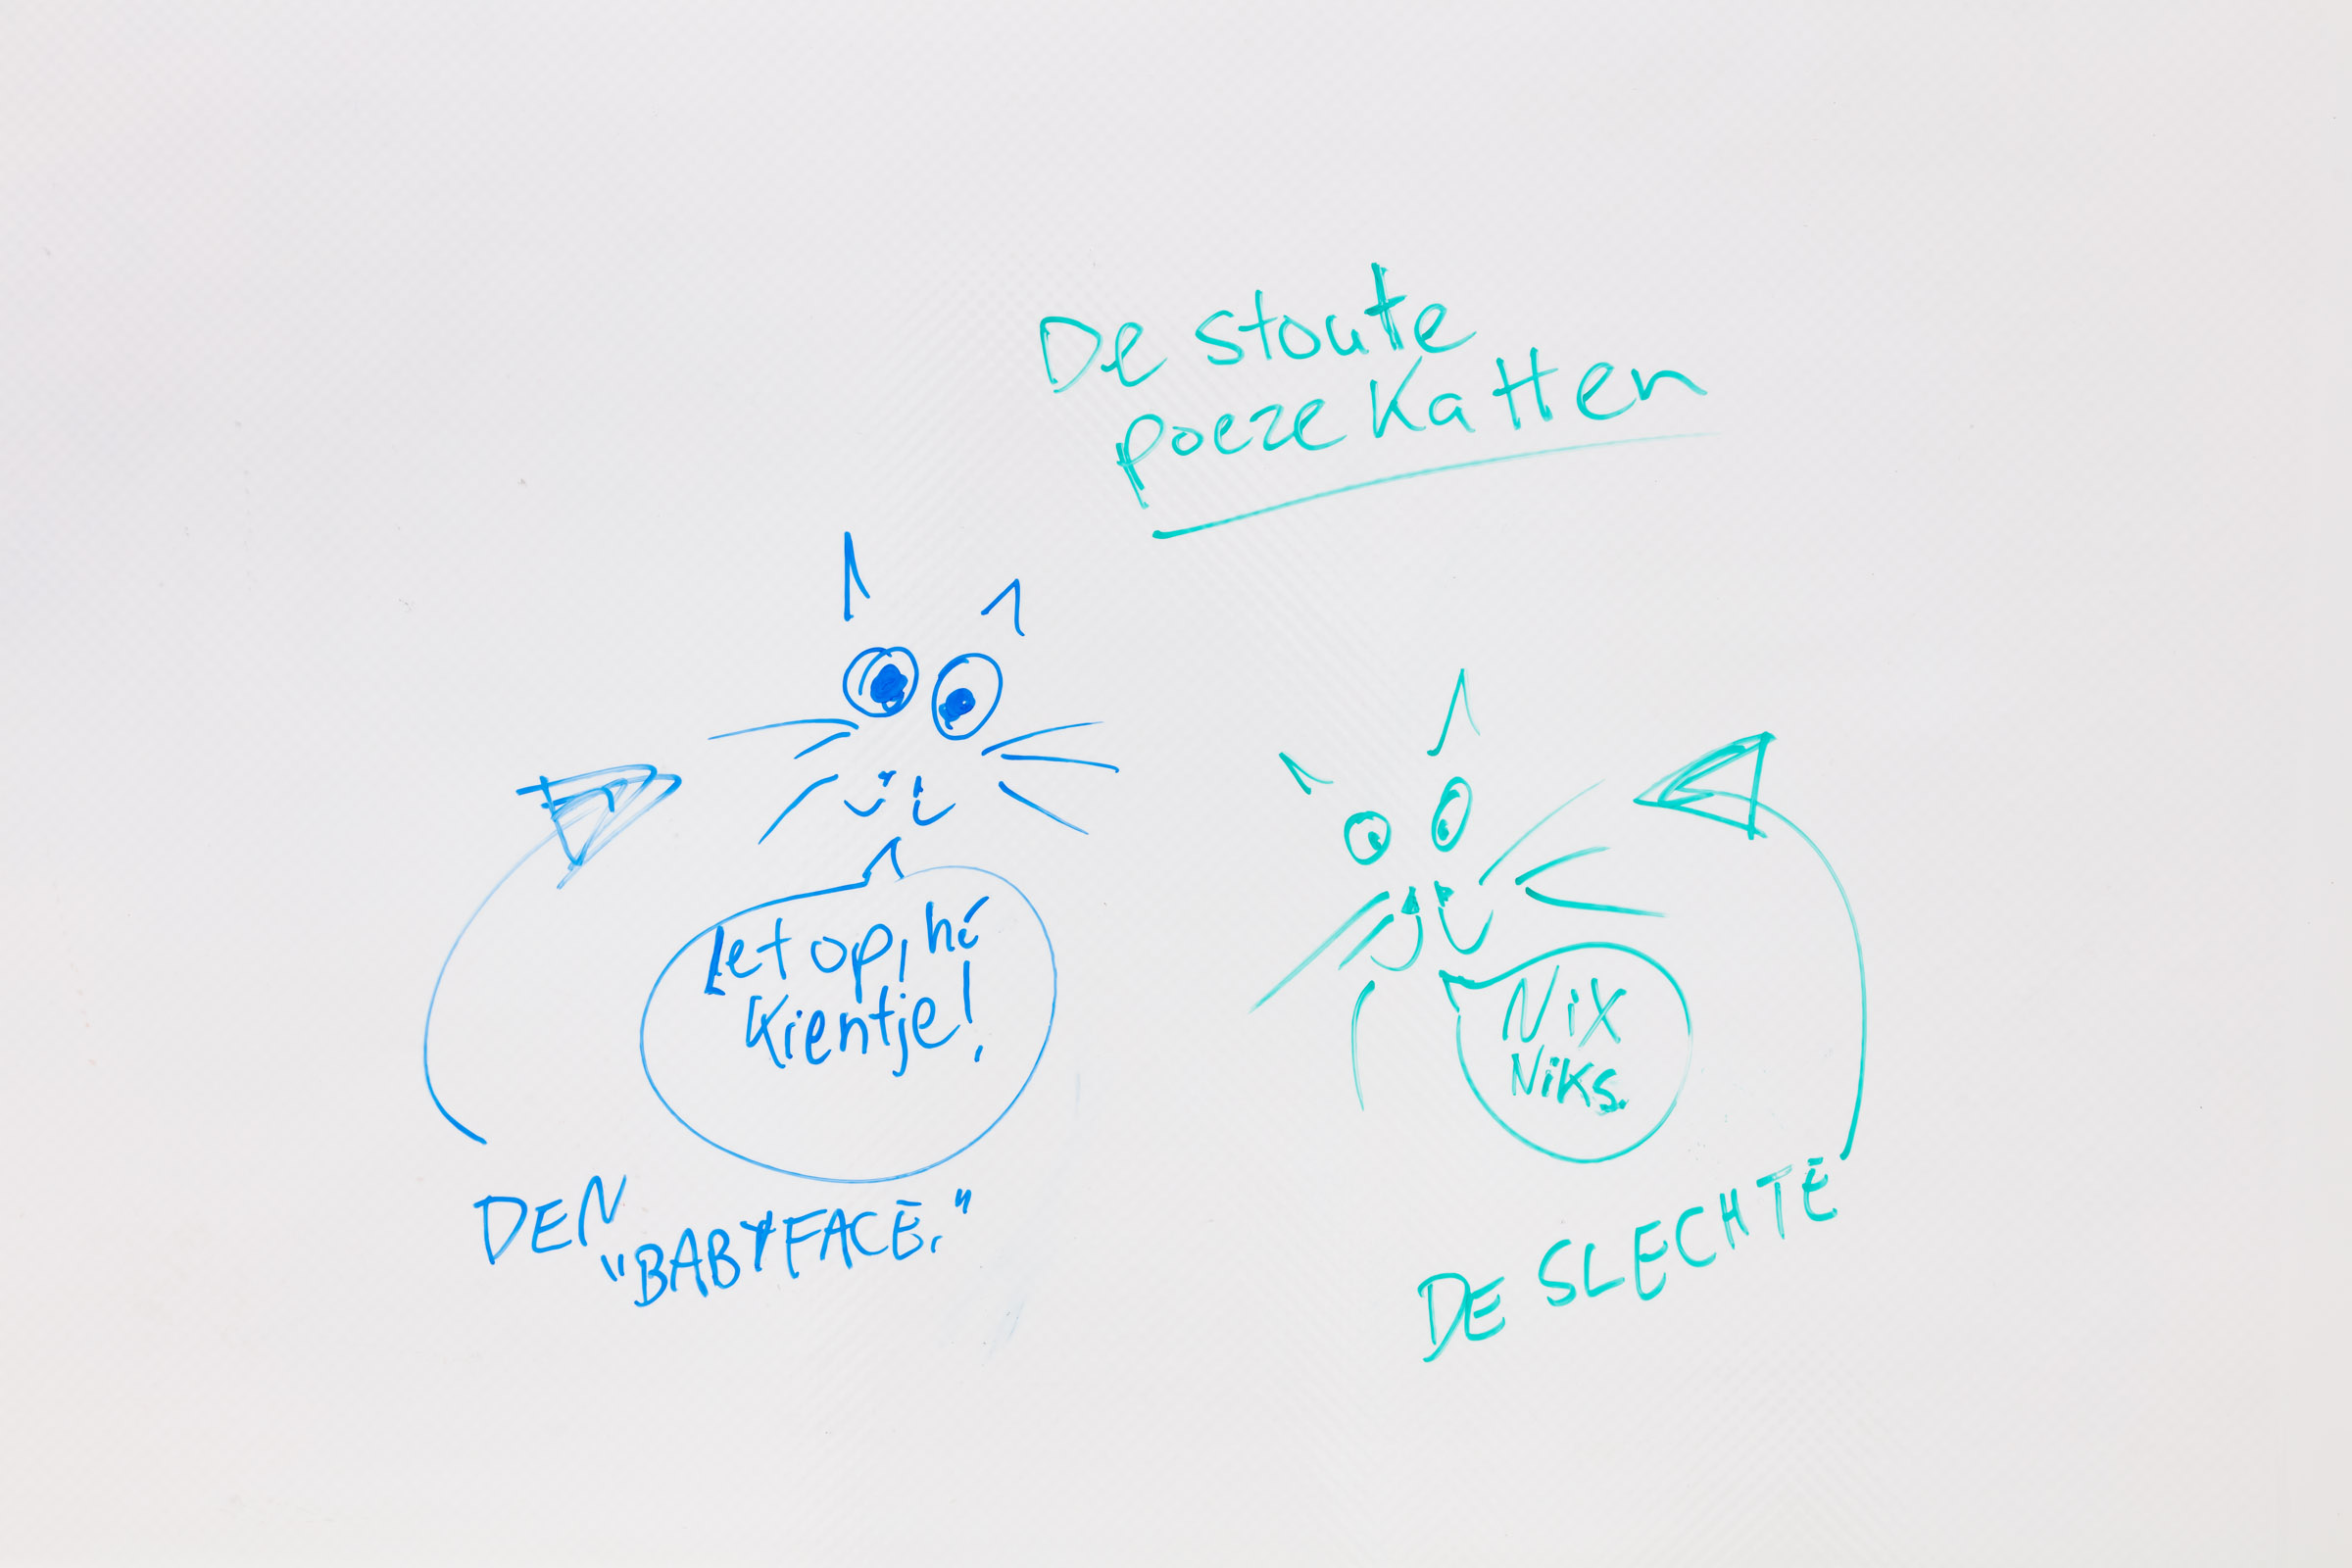 De stoute
poezekatten
Let op, hé
Kientje!
DEN
"BABYFACE."
Nix
Niks.
DE SLECHTE